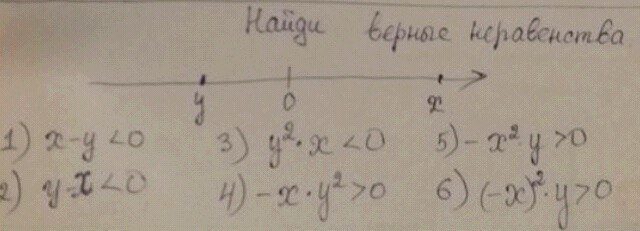 Найди верные неравенства
y 0 x
1) x-y<0 3) y²·x<0 5) -x²·y>0
2) y-x<0 4) -x·y²>0 6) (-x)²·y>0